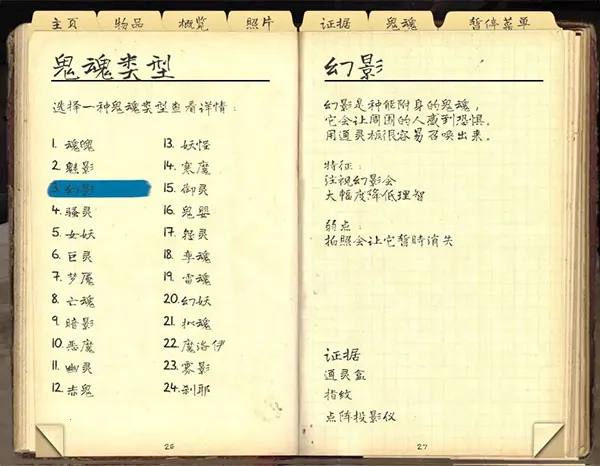 主页
物品
概览
照片
证据
鬼魂
暂停菜单
鬼魂类型
选择一种鬼魂类型查看详情：
1. 魂魄
2. 魅影
3. 幻影
4. 骚灵
5. 女妖
6. 巨灵
7. 梦魇
8. 亡魂
9. 暗影
10. 恶魔
11. 幽灵
12. 赤鬼
13. 妖怪
14. 寒魔
15. 御灵
16. 鬼婴
17. 怨灵
18. 孪魂
19. 雷魂
20. 幻妖
21. 拟魂
22. 魔洛伊
23. 雾影
24. 刹耶
26
幻影
幻影是种能附身的鬼魂，
它会让周围的人感到恐惧。
用通灵板很容易召唤出来。
特征：
注视幻影会
大幅度降低理智
弱点：
拍照会让它暂时消失
证据
通灵盒
指纹
点阵投影仪
27